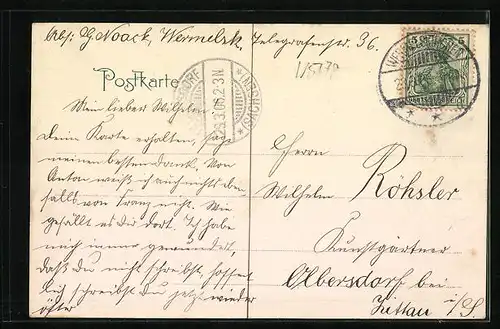 Abs: G. Noack, Wermelsk. Telegrafenstr. 36.
Postkarte
Mein lieber Wilhelm
Deine Karte erhalten, sag
meinen besten Dank. Von
Anton weiß ich auch nichts eben-
falls von Franz nicht. Wie
gefällt es Dir dort. Ich habe
mich immer gewundert,
daß Du nicht schreibst, hoffent-
lich schreibst Du jetzt wieder
öfter
Herrn
Wilhelm Röhsler
Kunstgärtner
Olbersdorf bei
Zittau i/S.